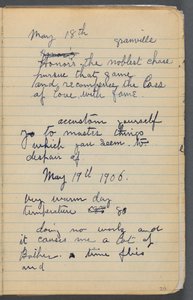 May 18th
granville
Honors the noblest chase
pursue that game
and recompense the loss
of love with fame
accustom yourself
to master things
which you seem to
despair of
May 19th 1906.
very warm day
temperature 80
doing no work and
it causes me a lot of
Bother. time flies
and